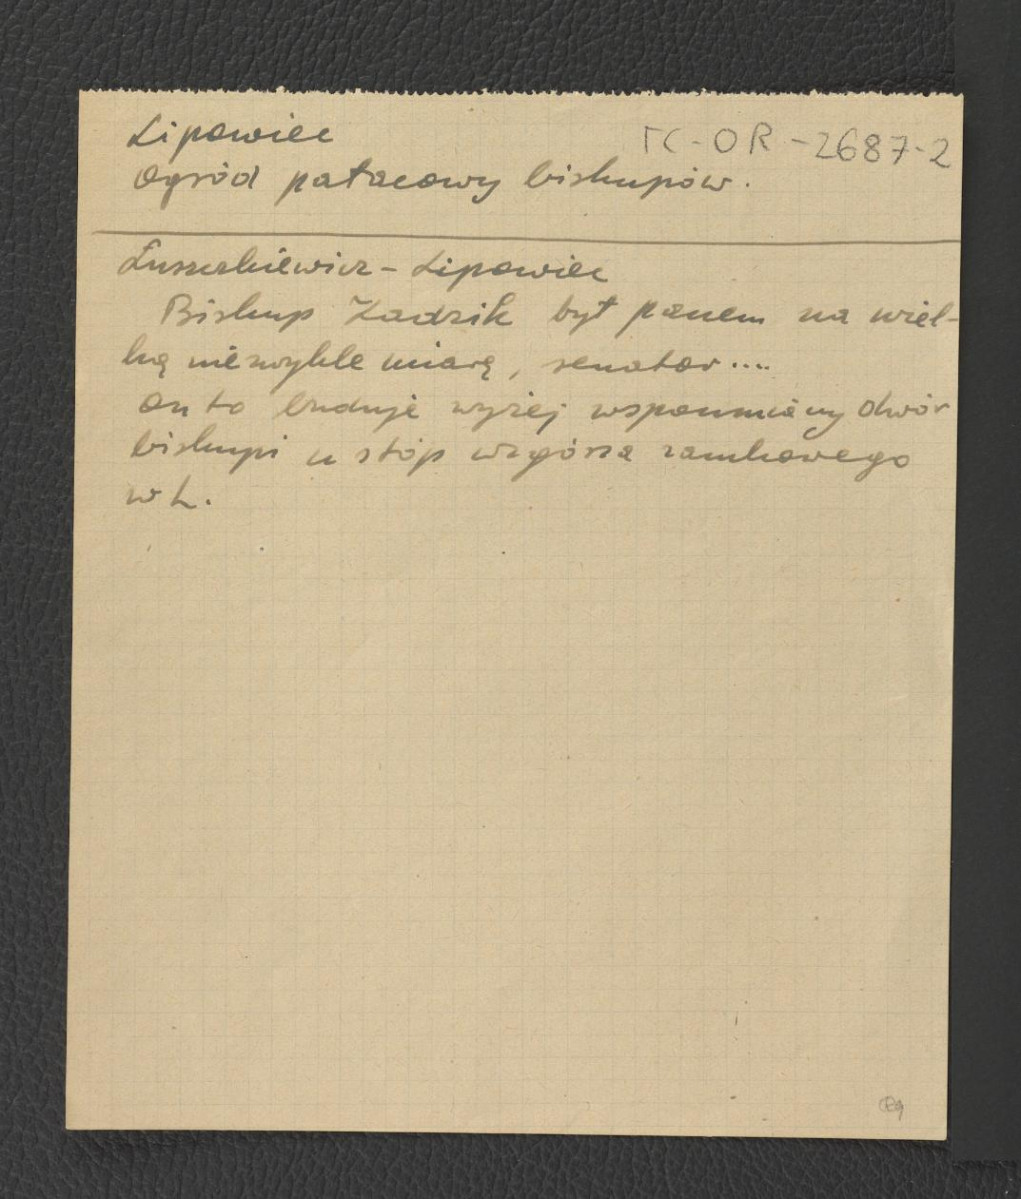 Lipowiec
TC-OR-2687-2
Ogród pałacowy biskupów.
Łuszczkiewicz - Lipowiec
Biskup Zadzik był panem na wiel-
ką niezwykle miarę, senator....
on to buduje wyżej wspomniany dwór
biskupi u stóp wzgórza zamkowego
w L.